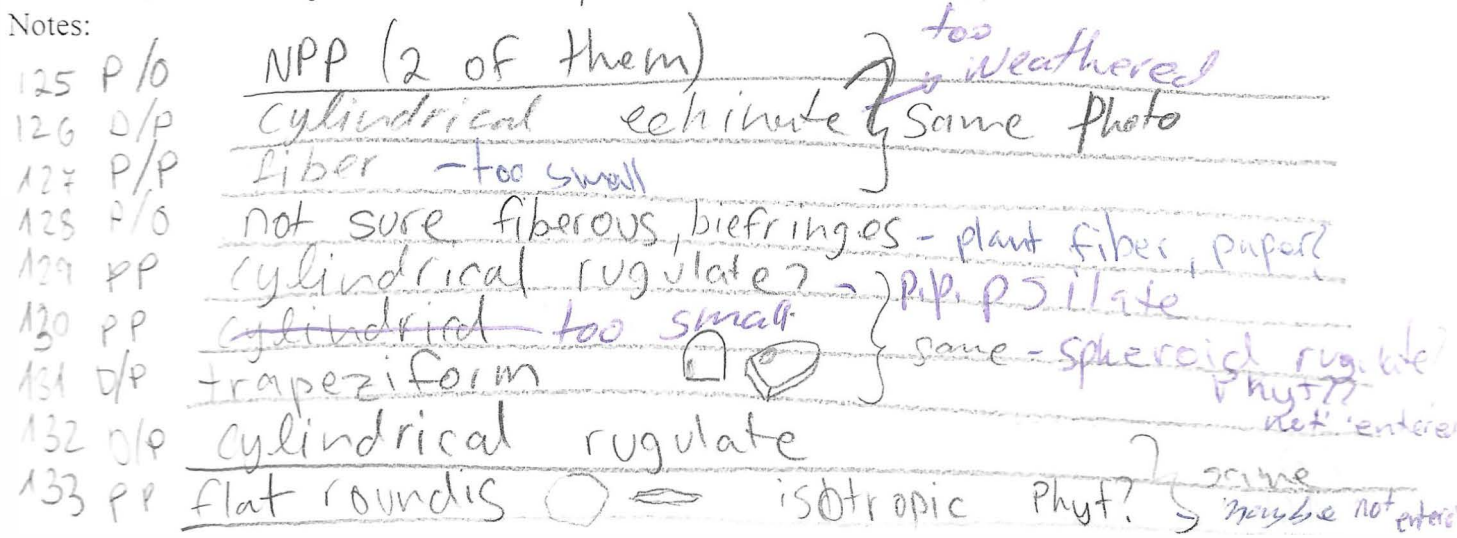 Notes:
too
125 P/O NPP (2 of them) weathered
126 D/P cylindrical echinate } same photo
127 P/P fiber - too small
128 P/O not sure fiberous, biefringes - plant fiber, paper?
129 PP cylindrical rugulate? - p.p. psilate
130 PP cylindrical too small
131 D/P trapeziform } same - spheroid rugulate?
Phyt??
not entered
132 D/P cylindrical rugulate
133 PP flat roundis isotropic Phyt? } same
maybe not entered